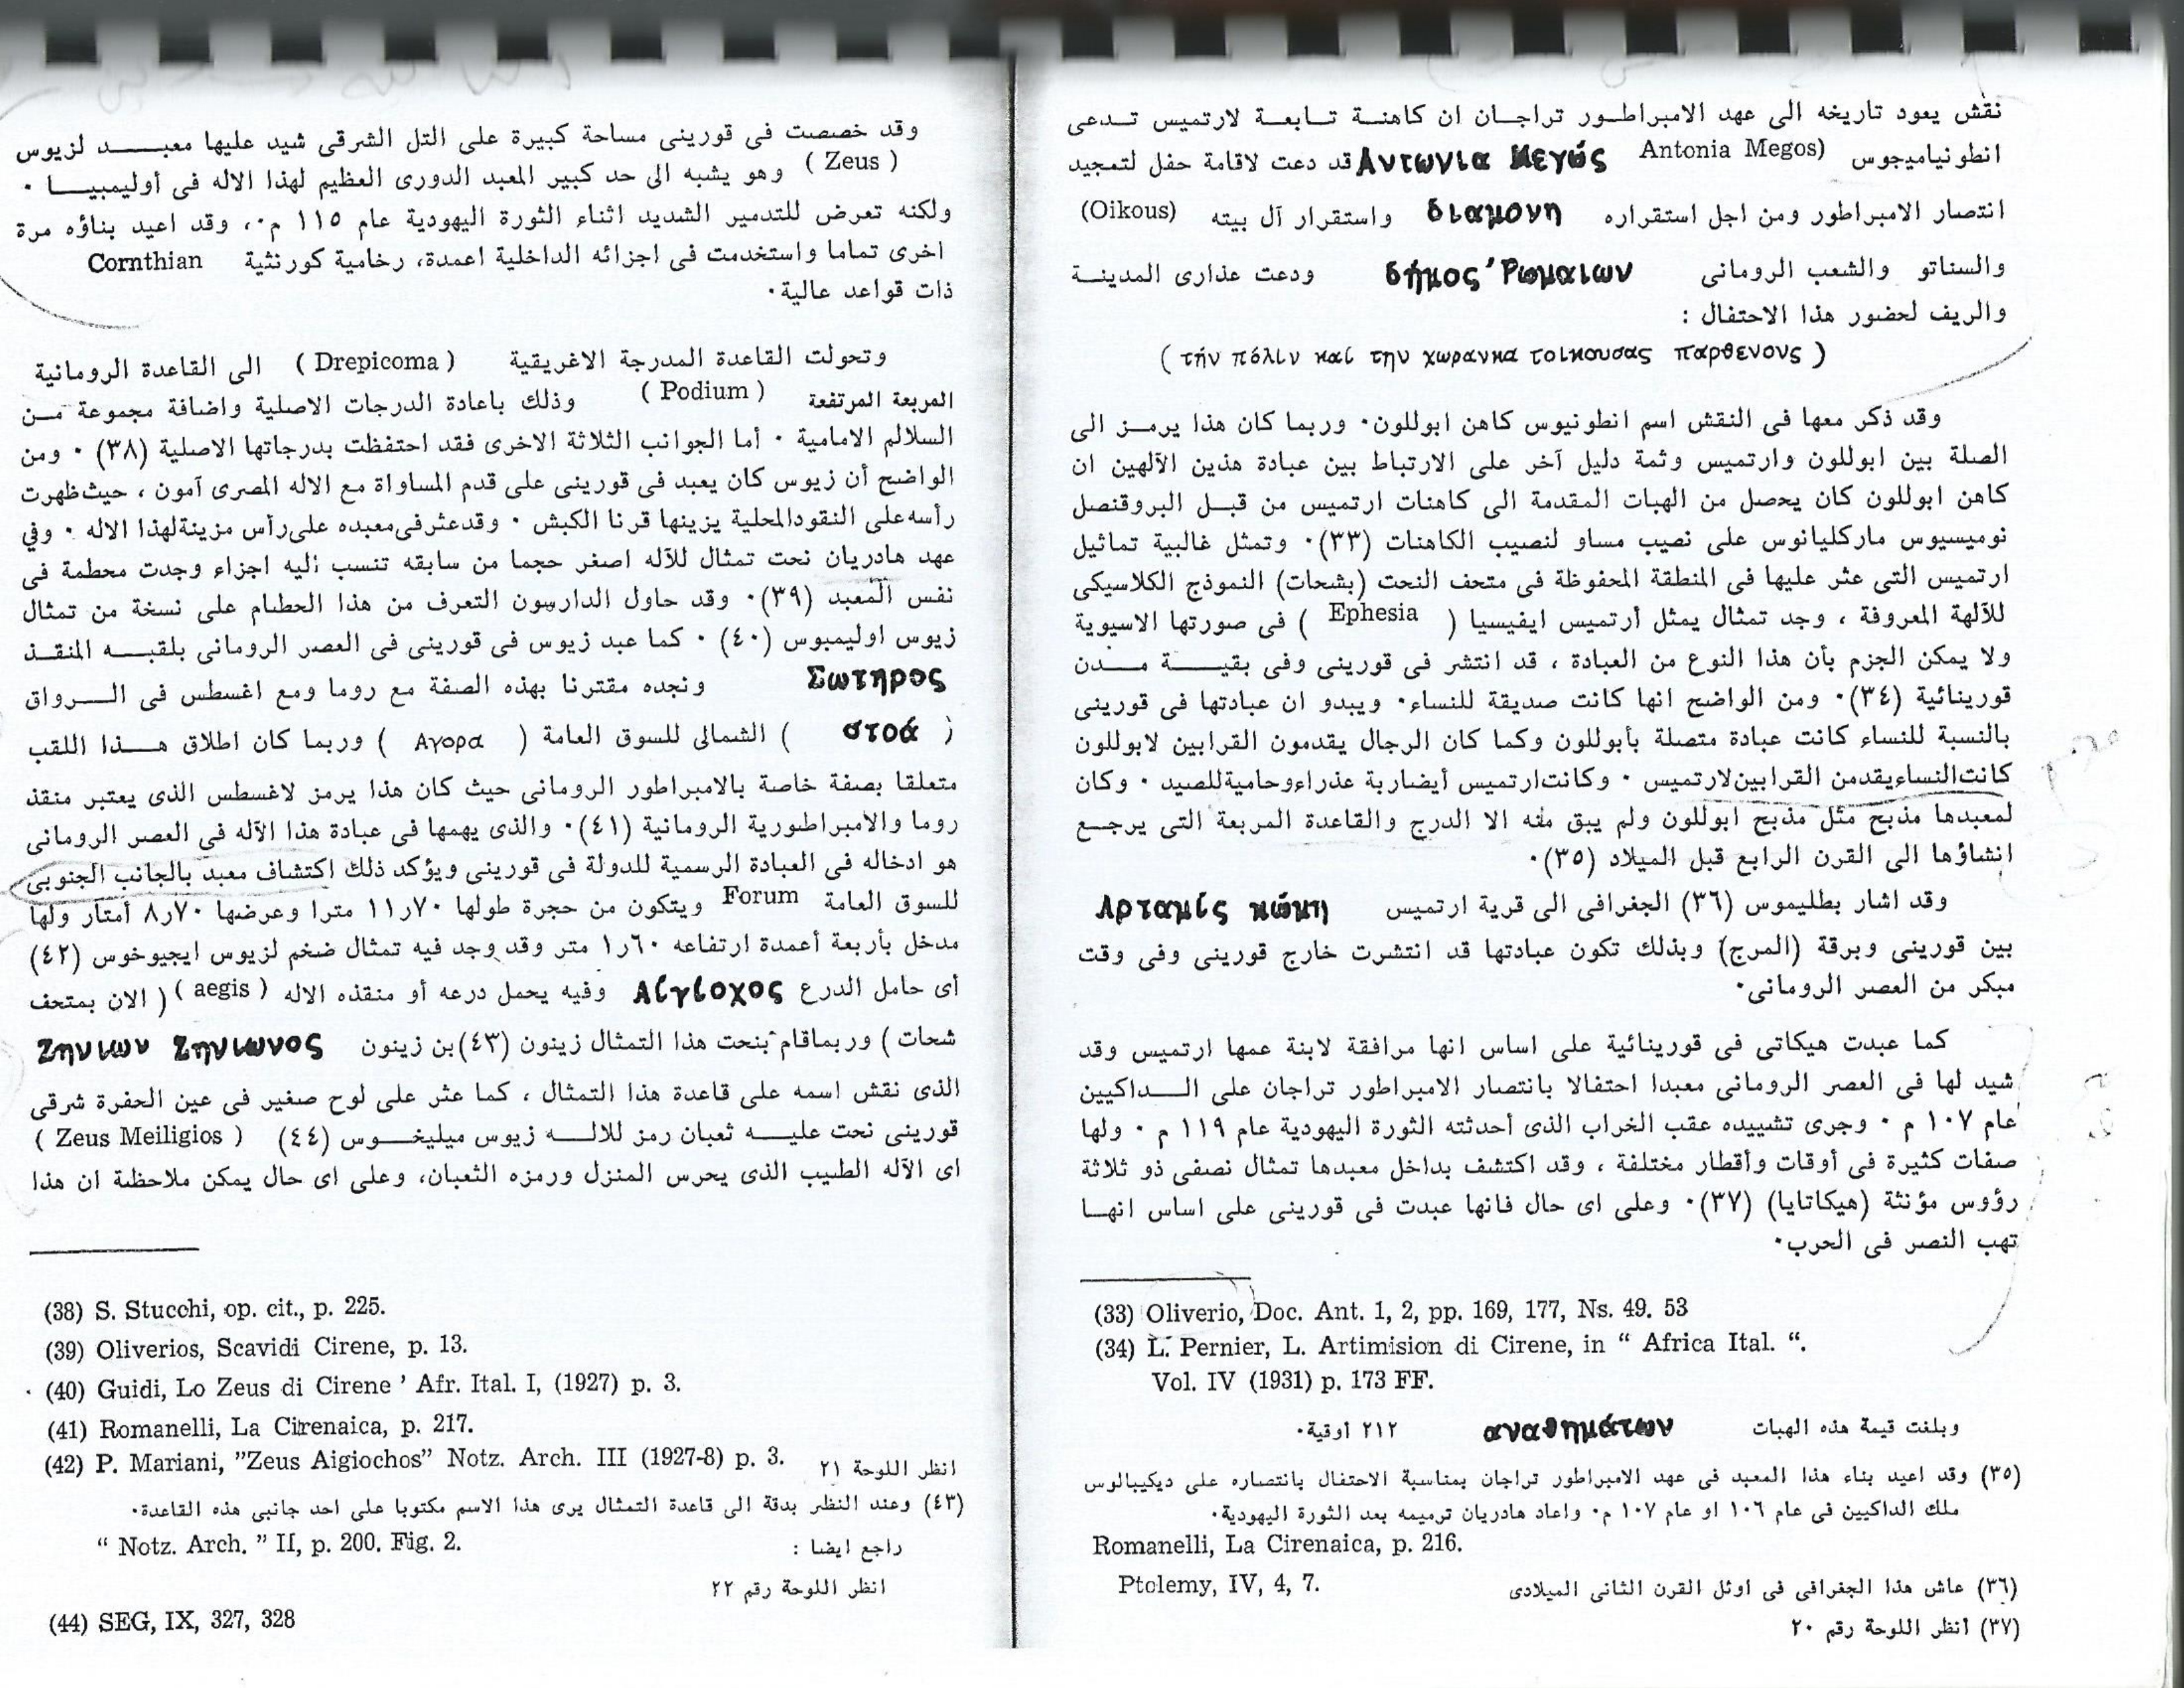 نقش يعود تاريخه الى عهد الامبراطور تراجان ان كاهنة تابعة لارتميس تدعى
انطونياميجوس (Antonia Megos Αντωνια Μεγώς قد دعت لاقامة حفل لتمجيد
انتصار الامبراطور ومن اجل استقراره διαμονη واستقرار آل بيته (Oikous)
والسناتو والشعب الرومانى δήμος Ῥωμαιων ودعت عذارى المدينة
والريف لحضور هذا الاحتفال :
( τήν πόλιν καί την χωρανκα τοικουσας παρθενους )
وقد ذكر معها فى النقش اسم انطونيوس كاهن ابوللون٠ وربما كان هذا يرمز الى
الصلة بين ابوللون وارتميس وثمة دليل آخر على الارتباط بين عبادة هذين الآلهين ان
كاهن ابوللون كان يحصل من الهبات المقدمة الى كاهنات ارتميس من قبل البروقنصل
نوميسيوس ماركليانوس على نصيب مساو لنصيب الكاهنات (٣٣)٠ وتمثل غالبية تماثيل
ارتميس التى عثر عليها فى المنطقة المحفوظة فى متحف النحت (بشحات) النموذج الكلاسيكى
للآلهة المعروفة ، وجد تمثال يمثل أرتميس ايفيسيا ( Ephesia ) فى صورتها الاسيوية
ولا يمكن الجزم بأن هذا النوع من العبادة ، قد انتشر فى قورينى وفى بقية مدن
قورينائية (٣٤)٠ ومن الواضح انها كانت صديقة للنساء٠ ويبدو ان عبادتها فى قورينى
بالنسبة للنساء كانت عبادة متصلة بأبوللون وكما كان الرجال يقدمون القرابين لابوللون
كانت النساء يقدمن القرابين لارتميس ٠ وكانت ارتميس أيضا ربة عذراء وحامية للصيد ٠ وكان
لمعبدها مذبح مثل مذبح ابوللون ولم يبق منه الا الدرج والقاعدة المربعة التى يرجع
انشاؤها الى القرن الرابع قبل الميلاد (٣٥)٠
وقد اشار بطليموس (٣٦) الجغرافى الى قرية ارتميس Αρταμίς κώμη
بين قورينى وبرقة (المرج) وبذلك تكون عبادتها قد انتشرت خارج قورينى وفى وقت
مبكر من العصر الرومانى٠
كما عبدت هيكاتى فى قورينائية على اساس انها مرافقة لابنة عمها ارتميس وقد
شيد لها فى العصر الرومانى معبدا احتفالا بانتصار الامبراطور تراجان على الداكيين
عام ١٠٧ م ٠ وجرى تشييده عقب الخراب الذى أحدثته الثورة اليهودية عام ١١٩ م ٠ ولها
صفات كثيرة فى أوقات وأقطار مختلفة ، وقد اكتشف بداخل معبدها تمثال نصفى ذو ثلاثة
رؤوس مؤنثة (هيكاتايا) (٣٧)٠ وعلى اى حال فانها عبدت فى قورينى على اساس انها
تهب النصر فى الحرب٠
(33) Oliverio, Doc. Ant. 1, 2, pp. 169, 177, Ns. 49. 53
(34) L. Pernier, L. Artimision di Cirene, in “ Africa Ital. “.
Vol. IV (1931) p. 173 FF.
وبلغت قيمة هذه الهبات αναθημάτων ٢١٢ أوقية٠
(٣٥) وقد اعيد بناء هذا المعبد فى عهد الامبراطور تراجان بمناسبة الاحتفال بانتصاره على ديكيبالوس
ملك الداكيين فى عام ١٠٦ او عام ١٠٧ م٠ واعاد هادريان ترميمه بعد الثورة اليهودية٠
Romanelli, La Cirenaica, p. 216.
(٣٦) عاش هذا الجغرافى فى اوئل القرن الثانى الميلادى Ptolemy, IV, 4, 7.
(٣٧) أنظر اللوحة رقم ٢٠
وقد خصصت فى قورينى مساحة كبيرة على التل الشرقى شيد عليها معبد لزيوس
( Zeus ) وهو يشبه الى حد كبير المعبد الدورى العظيم لهذا الاله فى أوليمبيا ٠
ولكنه تعرض للتدمير الشديد اثناء الثورة اليهودية عام ١١٥ م٠، وقد اعيد بناؤه مرة
اخرى تماما واستخدمت فى اجزائه الداخلية اعمدة، رخامية كورنثية Cornthian
ذات قواعد عالية٠
وتحولت القاعدة المدرجة الاغريقية ( Drepicoma ) الى القاعدة الرومانية
المربعة المرتفعة ( Podium ) وذلك باعادة الدرجات الاصلية واضافة مجموعة من
السلالم الامامية ٠ أما الجوانب الثلاثة الاخرى فقد احتفظت بدرجاتها الاصلية (٣٨) ٠ ومن
الواضح أن زيوس كان يعبد فى قورينى على قدم المساواة مع الاله المصرى آمون ، حيث ظهرت
رأسه على النقود المحلية يزينها قرنا الكبش ٠ وقد عثر فى معبده على رأس مزينة لهذا الاله ٠ وفي
عهد هادريان نحت تمثال للآله اصغر حجما من سابقه تنسب اليه اجزاء وجدت محطمة فى
نفس المعبد (٣٩)٠ وقد حاول الدارسون التعرف من هذا الحطام على نسخة من تمثال
زيوس اوليمبوس (٤٠) ٠ كما عبد زيوس فى قورينى فى العصر الرومانى بلقبه المنقذ
Σωτηρος ونجده مقترنا بهذه الصفة مع روما ومع اغسطس فى الرواق
( στοά ) الشمالى للسوق العامة ( Αγορα ) وربما كان اطلاق هذا اللقب
متعلقا بصفة خاصة بالامبراطور الرومانى حيث كان هذا يرمز لاغسطس الذى يعتبر منقذ
روما والامبراطورية الرومانية (٤١)٠ والذى يهمها فى عبادة هذا الآله فى العصر الرومانى
هو ادخاله فى العبادة الرسمية للدولة فى قورينى ويؤكد ذلك اكتشاف معبد بالجانب الجنوبى
للسوق العامة Forum ويتكون من حجرة طولها ٧٠ر١١ مترا وعرضها ٧٠ر٨ أمتار ولها
مدخل بأربعة أعمدة ارتفاعه ٦٠ر١ متر وقد وجد فيه تمثال ضخم لزيوس ايجيوخوس (٤٢)
أى حامل الدرع Αίγίοχος وفيه يحمل درعه أو منقذه الاله ( aegis ) ( الان بمتحف
شحات ) وربما قام بنحت هذا التمثال زينون (٤٣) بن زينون Ζηνιων Ζηνιωνος
الذى نقش اسمه على قاعدة هذا التمثال ، كما عثر على لوح صغير فى عين الحفرة شرقى
قورينى نحت عليه ثعبان رمز للاله زيوس ميليخوس (٤٤) ( Zeus Meiligios )
اى الآله الطيب الذى يحرس المنزل ورمزه الثعبان، وعلى اى حال يمكن ملاحظة ان هذا
(38) S. Stucchi, op. cit., p. 225.
(39) Oliverios, Scavidi Cirene, p. 13.
(40) Guidi, Lo Zeus di Cirene ’ Afr. Ital. I, (1927) p. 3.
(41) Romanelli, La Cirenaica, p. 217.
(42) P. Mariani, ”Zeus Aigiochos” Notz. Arch. III (1927-8) p. 3. انظر اللوحة ٢١
(٤٣) وعند النظر بدقة الى قاعدة التمثال يرى هذا الاسم مكتوبا على احد جانبى هذه القاعدة٠
راجع ايضا : “ Notz. Arch. ” II, p. 200. Fig. 2.
انظر اللوحة رقم ٢٢
(44) SEG, IX, 327, 328